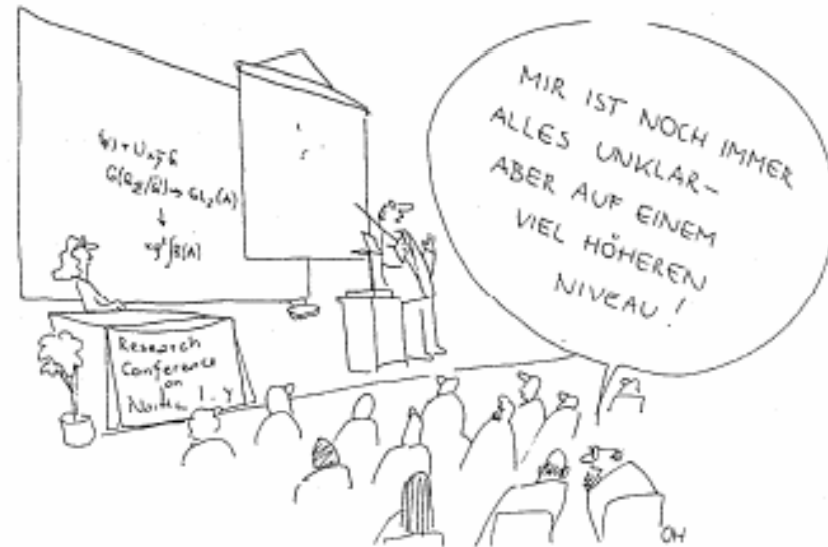 G(G_Q/G) → GL₂(A)
↓
Research
Conference
on
MIR IST NOCH IMMER
ALLES UNKLAR-
ABER AUF EINEM
VIEL HÖHEREN
NIVEAU!
OH